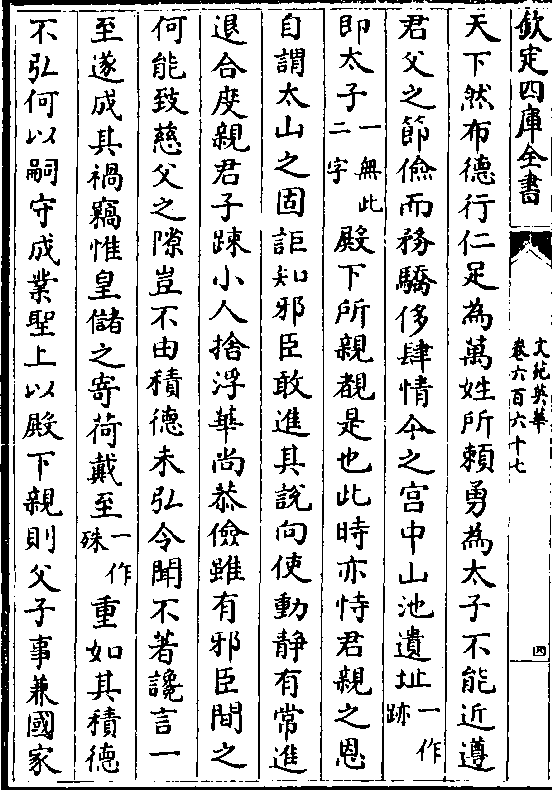 欽定四庫全書
文苑英華
卷六百六十七
四
天下然布德行仁足為萬姓所賴勇為太子不能近遵
君父之節儉而務驕侈肆情今之宫中山池遺址一作跡
即太子一無此二字殿下所親覩是也此時亦恃君親之恩
自謂太山之固詎知邪臣敢進其說向使動静有常進
退合度親君子踈小人捨浮華尚恭儉雖有邪臣間之
何能致慈父之隙豈不由積德未弘令聞不著讒言一
至遂成其禍竊惟皇儲之寄荷戴至一作殊重如其積德
不弘何以嗣守成業聖上以殿下親則父子事兼國家